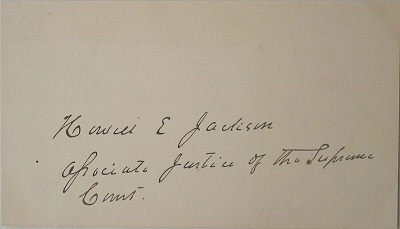 Howell E Jackson
Associate Justice of the Supreme
Court.